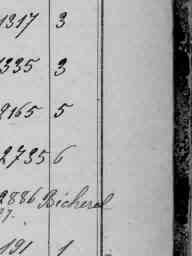 1317 3
1335 3
2165 5
2735 6
2886 Bicherel
27.
191 1